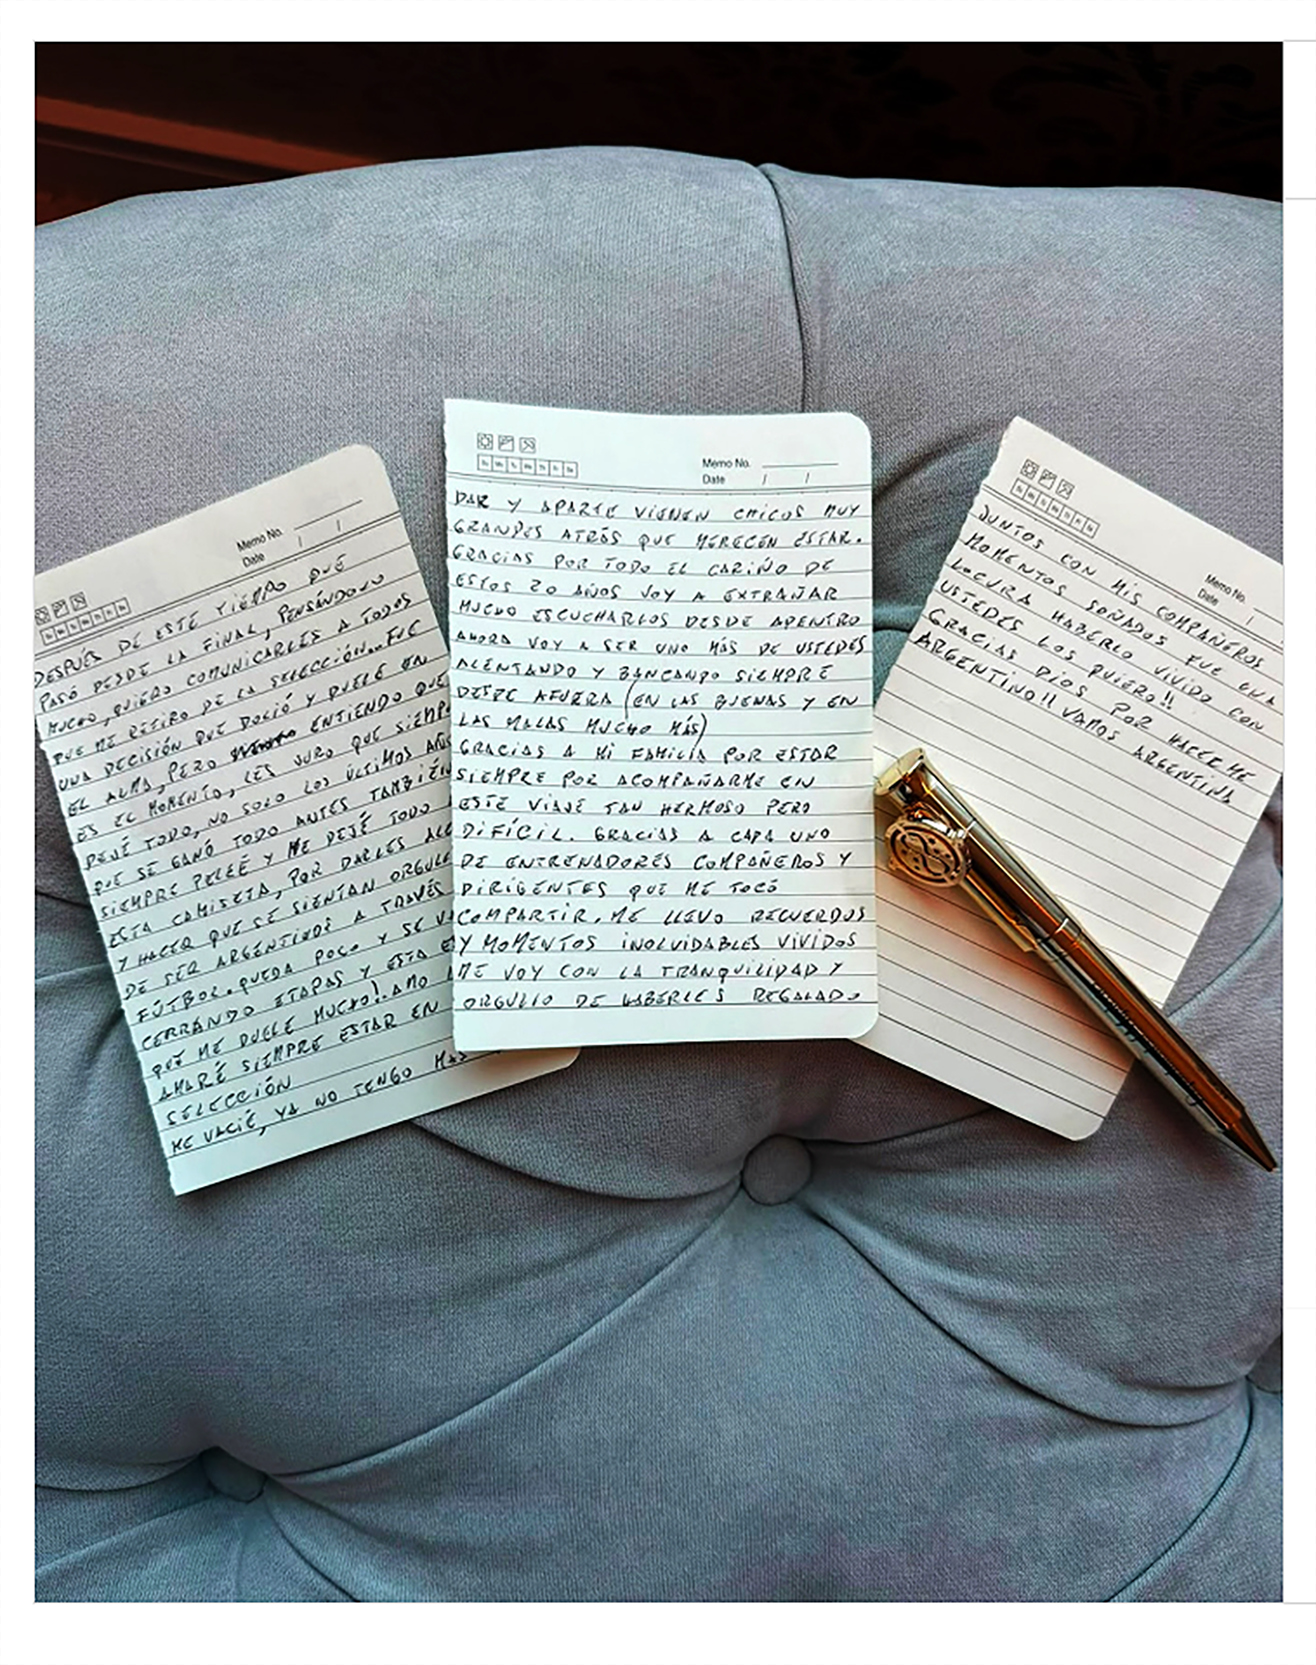 Memo No.
Date / /
DESPUÉS DE ESTE TIEMPO QUE
PASÓ DESDE LA FINAL, PENSÁNDOLO
MUCHO, QUIERO COMUNICARLES A TODOS
QUE ME RETIRO DE LA SELECCIÓN... FUE
UNA DECISIÓN QUE DOLIÓ Y DUELE EN
EL ALMA, PERO ENTIENDO QUE
ES EL MOMENTO, LES JURO QUE SIEMP
DEJÉ TODO, NO SOLO LOS ÚLTIMOS AÑOS
QUE SE GANÓ TODO ANTES TAMBIÉN
SIEMPRE PELEÉ Y ME DEJÉ TODO
ESTA CAMISETA, POR DARLES
Y HACER QUE SE SIENTAN ORGULL
DE SER ARGENTINOS A TRAVÉS
FÚTBOL. QUEDA POCO Y SE V
CERRANDO ETAPAS Y ESTA E
QUE ME DUELE MUCHO!. AMO
AMARÉ SIEMPRE ESTAR EN
SELECCIÓN
ME VACIÉ, YA NO TENGO MAS
Memo No.
Date / /
DAR Y APARTE VIENEN CHICOS MUY
GRANDES ATRÁS QUE MERECEN ESTAR.
GRACIAS POR TODO EL CARIÑO DE
ESTOS 20 AÑOS VOY A EXTRAÑAR
MUCHO ESCUCHARLOS DESDE ADENTRO
AHORA VOY A SER UNO MÁS DE USTEDES
ALENTANDO Y BANCANDO SIEMPRE
DESDE AFUERA (EN LAS BUENAS Y EN
LAS MALAS MUCHO MÁS)
GRACIAS A MI FAMILIA POR ESTAR
SIEMPRE POR ACOMPAÑARME EN
ESTE VIAJE TAN HERMOSO PERO
DIFÍCIL. GRACIAS A CADA UNO
DE ENTRENADORES COMPAÑEROS Y
DIRIGENTES QUE ME TOCÓ
COMPARTIR. ME LLEVO RECUERDOS
Y MOMENTOS INOLVIDABLES VIVIDOS
ME VOY CON LA TRANQUILIDAD Y
ORGULLO DE HABERLES REGALADO
Memo No.
Date /
JUNTOS CON MIS COMPAÑEROS
MOMENTOS SOÑADOS FUE UNA
LOCURA HABERLO VIVIDO CON
USTEDES LOS QUIERO!!
GRACIAS DIOS POR HACERME
ARGENTINO!! VAMOS ARGENTINA